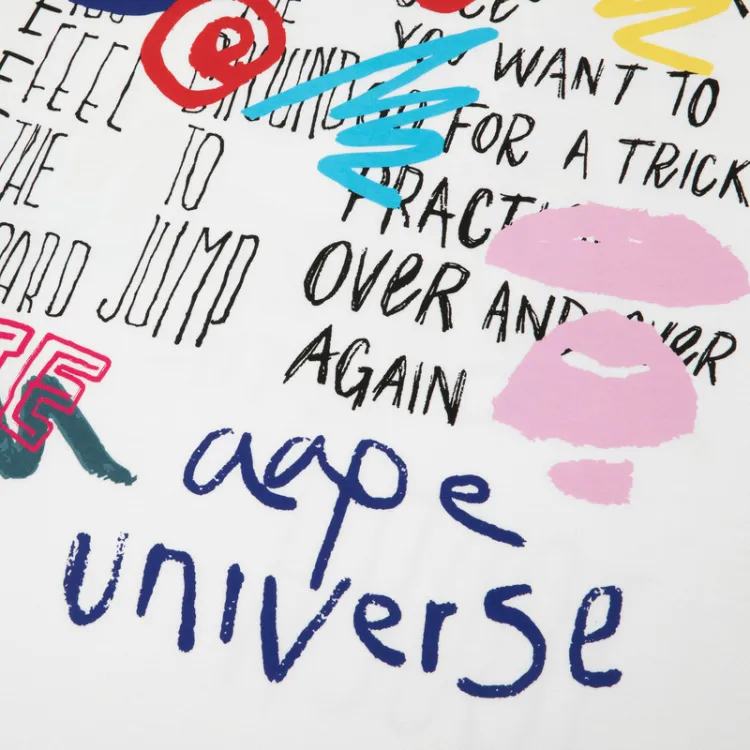 FEEL GROUND
THE TO
JUMP
YOU WANT TO
GO FOR A TRICK
PRACTI
OVER AND OVER
AGAIN
aape
universe